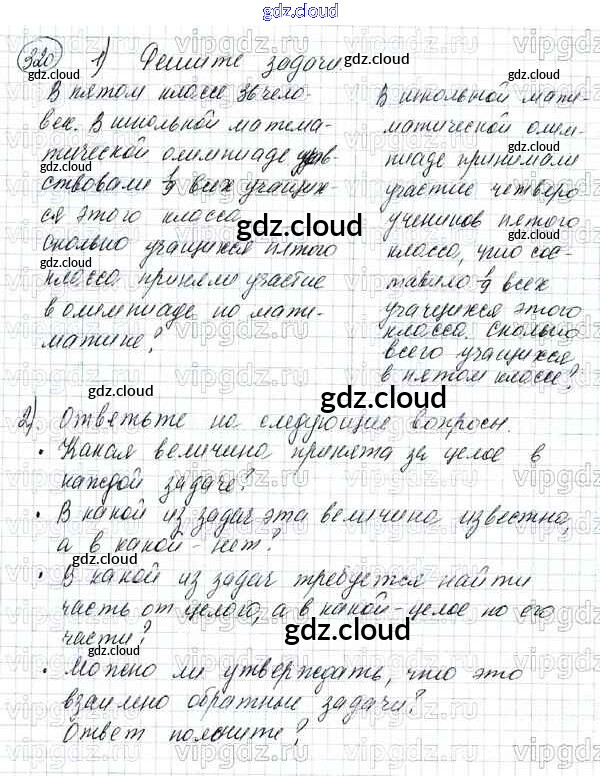 gdz.cloud
320 1) Решите задачи
В пятом классе 36 чело-
век. В школьной матема-
тической олимпиаде учав-
ствовали 1/9 всех учащих-
ся этого класса.
Сколько учащихся пятого
класса приняли участие
в олимпиаде по мате-
матике?
В школьной мате-
матической олим-
пиаде принимали
участие четверо
учеников пятого
класса, что сос-
тавило 1/9 всех
учащихся этого
класса. Сколько
всего учащихся
в пятом классе?
2). Ответьте на следующие вопросы.
• Какая величина принята за целое в
каждой задаче?
• В какой из задач эта величина известна,
а в какой - нет?
• В какой из задач требуется найти
часть от целого, а в какой - целое по его
части?
• Можно ли утверждать, что это
взаимно обратные задачи?
Ответ поясните?